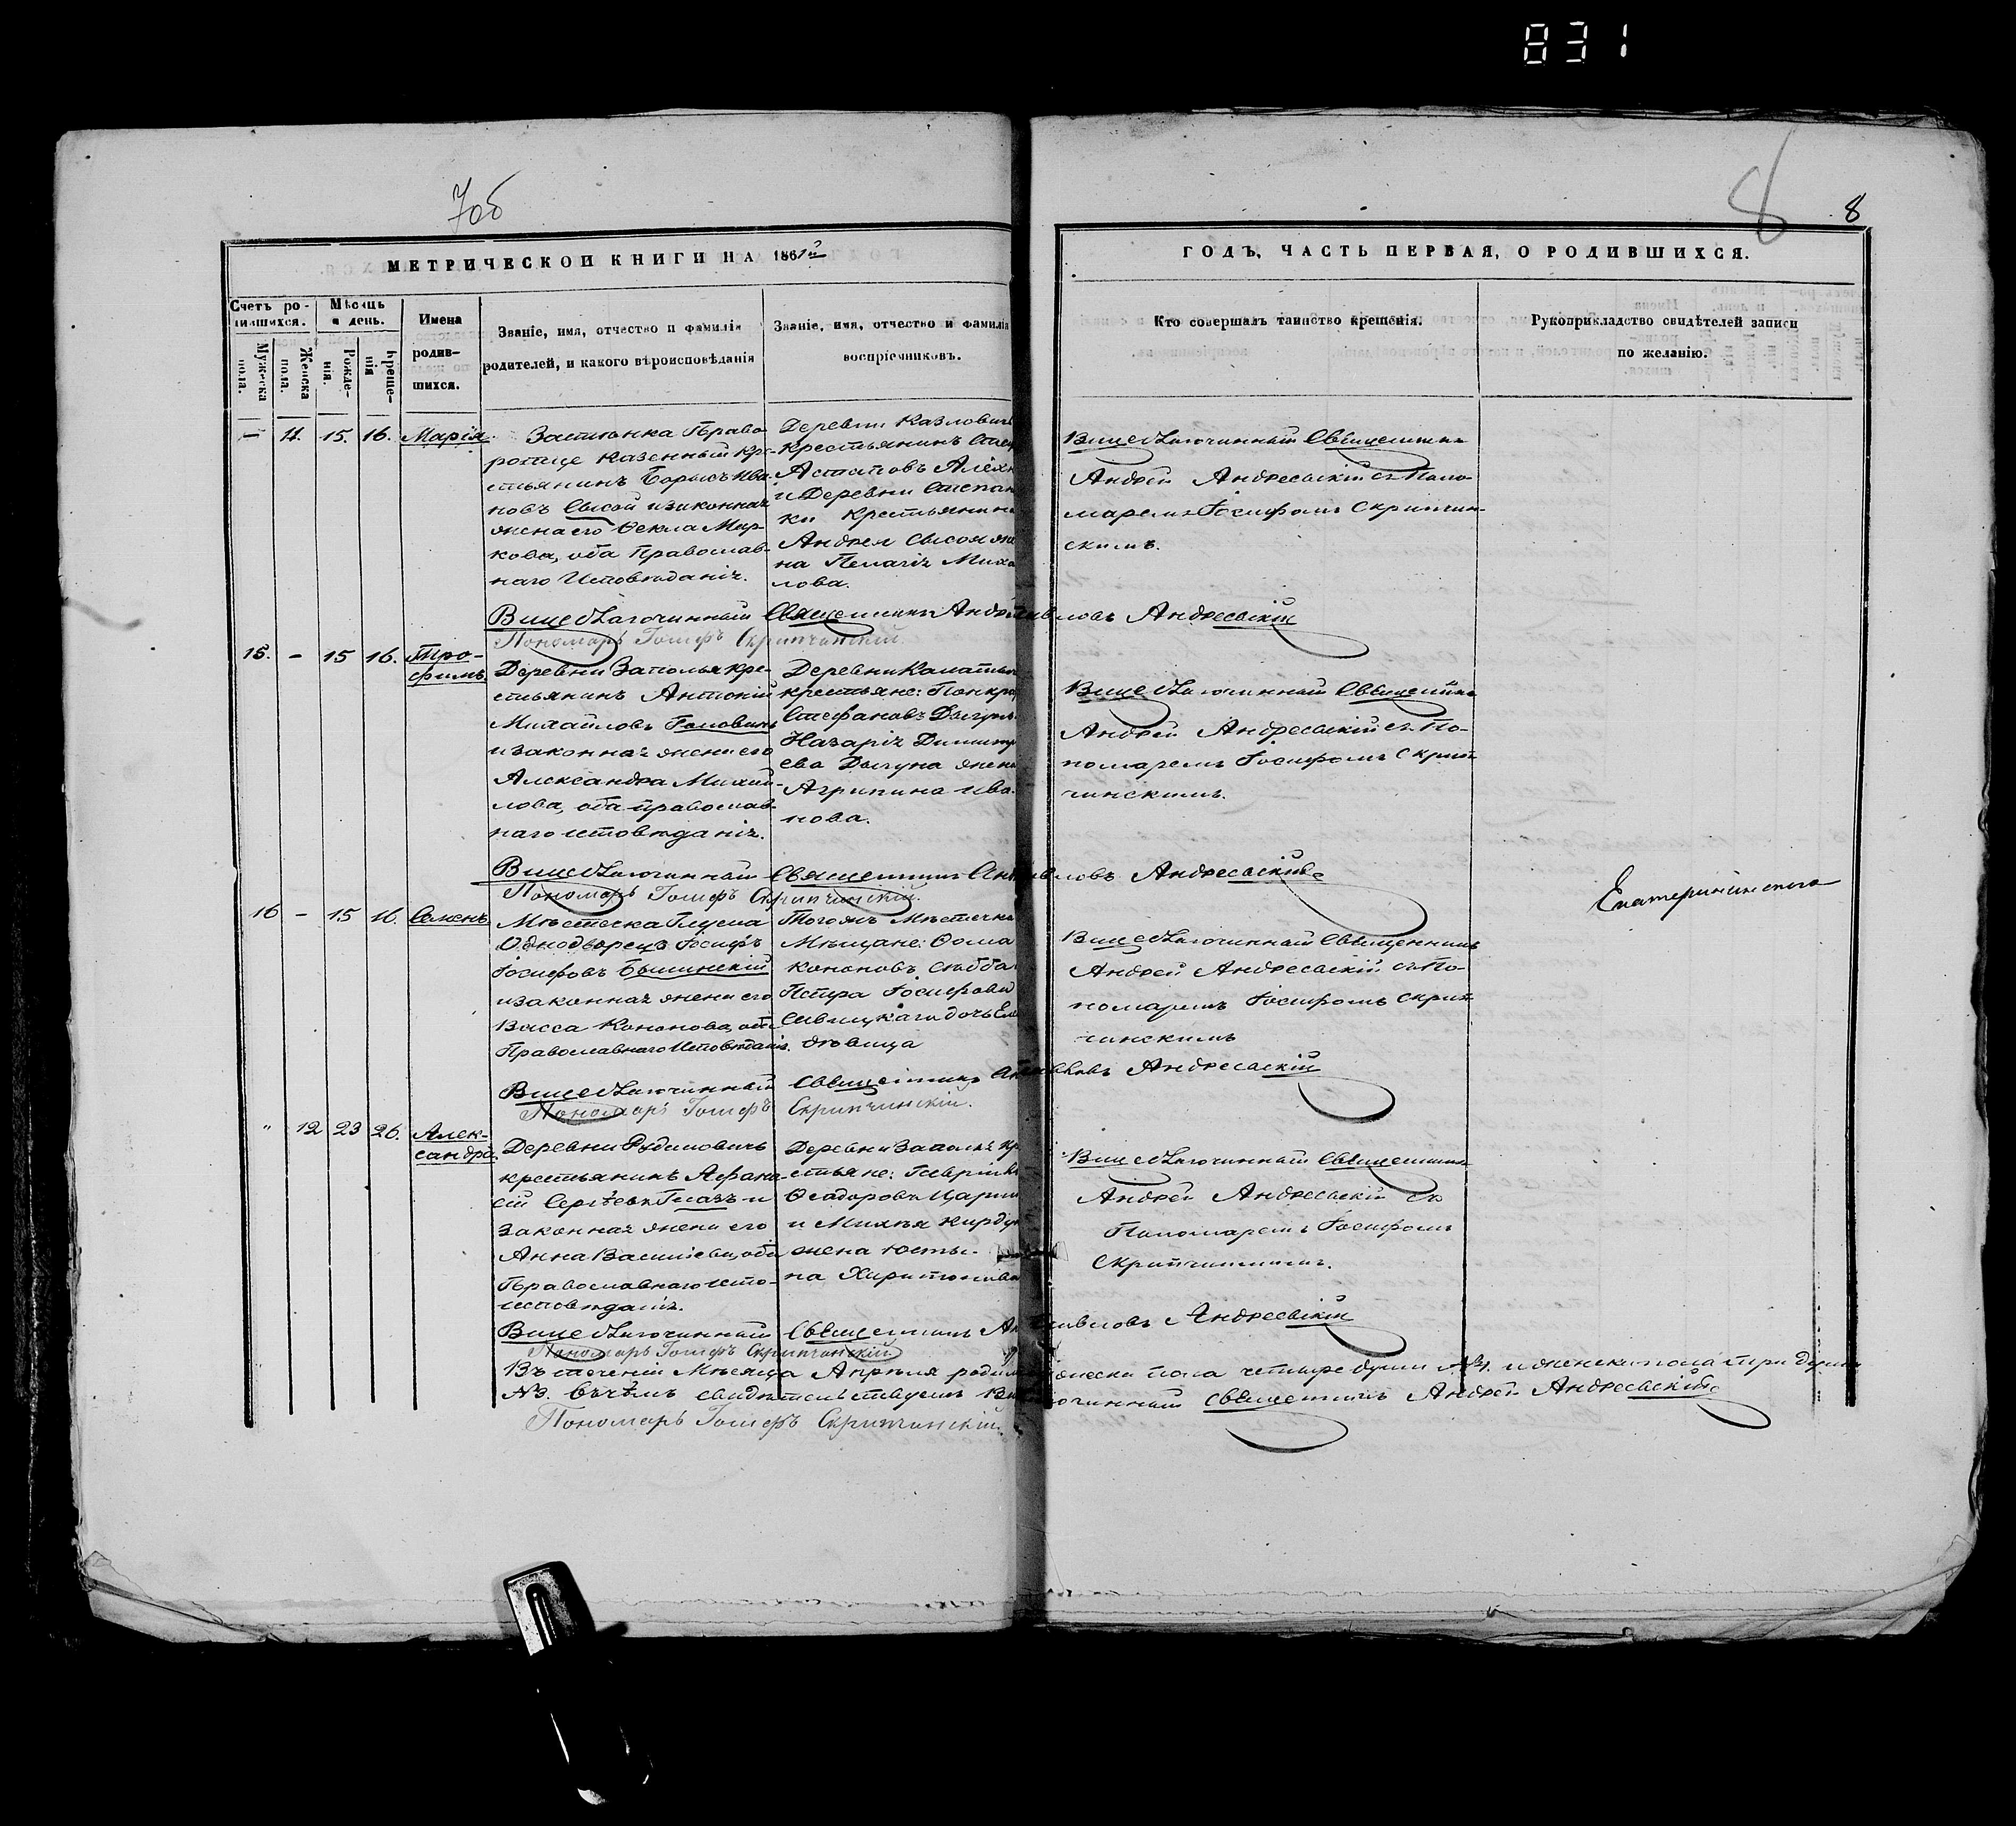 831
7об
8
8
МЕТРИЧЕСКОЙ КНИГИ НА 1861й
ГОДЪ, ЧАСТЬ ПЕРВАЯ, О РОДИВШИХСЯ.
Счетъ родившихся.
Мужеска пола.
Женска пола.
Мѣсяцъ и день.
Рожденія.
Крещенія
Имена родившихся.
Званіе, имя, отчество и фамилія
родителей, и какого вѣроисповѣданія
Званіе, имя, отчество и фамилія
воспріемниковъ.
Кто совершалъ таинство крещенія.
Рукоприкладство свидѣтелей записи
по желанію.
— 11. 15. 16. Марія
Застѣнка
казенный кре-
стьянинъ Борисъ Ива-
новъ Сысой и законная
жена его Ѳекла Мар-
кова, оба Православ-
наго Исповѣданія.
Деревни Казлович
крестьянинъ
Астаповъ
и Деревни Степан
ки крестьянина
Андрея Сысоя же
на Пелагія Миха
лова.
Вицеблагочинный Священникъ
Андрей Андреевскій съ Поно-
маремъ Іосифомъ Скрипчин-
скимъ.
Вицеблагочинный Священникъ Андрей Павловъ Андреевскій
Пономарь Іосифъ Скрипчинскій.
15. — 15 16. Тро-
фимъ
Деревни Заполья кре-
стьянинъ Антоній
Михайловъ Головачъ
и законная жена его
Александра Михай-
лова, оба православ-
наго исповѣданія.
Деревни
крестьяне:
Стефановъ Дыгунъ
Назарія Димитр
ева Дыгуна жена
Агрипина Ива-
нова.
Вицеблагочинный Священникъ
Андрей Андреевскій съ По-
номаремъ Іосифомъ Скрип-
чинскимъ.
Вицеблагочинный Священникъ Павловъ Андреевскій
Пономарь Іосифъ Скрипчинскій.
16 — 15 16. Семенъ
Мѣстечка Глуска
Однодворецъ Іосифъ
Іосифовъ
и законная жена его
Васса Кононова, оба
Православнаго Исповѣданія.
Тогожъ Мѣстечка
Мѣщане: Ѳома
Кононовъ
Петра Іосифова
Савицкаго дочь
дѣвица
Вицеблагочинный Священникъ
Андрей Андреевскій съ По-
номаремъ Іосифомъ Скрип-
чинскимъ
Екатерининскаго
Вицеблагочинный Священникъ Павловъ Андреевскій
Пономарь Іосифъ Скрипчинскій.
" 12 23 26. Алек-
сандра
Деревни
крестьянинъ Афана-
сій Сергѣевъ Глазъ и
законная жена его
Анна Васильева, оба
Православнаго Испо-
исповѣданія.
Деревни Заполья кр
стьяне:
Ѳеодоровъ
и Михея
жена Юсти-
на Харитонова
Вицеблагочинный Священникъ
Андрей Андреевскій съ
Пономаремъ Іосифомъ
Скрипчинскимъ.
Вицеблагочинный Священникъ Павловъ Андреевскій
Пономарь Іосифъ Скрипчинскій
Въ теченіи Мѣсяца Апрѣля родил мужеска пола четыре души №4. и женска пола три души
№3. Въ чемъ свидѣтельствуемъ Вицеблагочинный Священникъ Андрей Андреевскій
Пономарь Іосифъ Скрипчинскій.